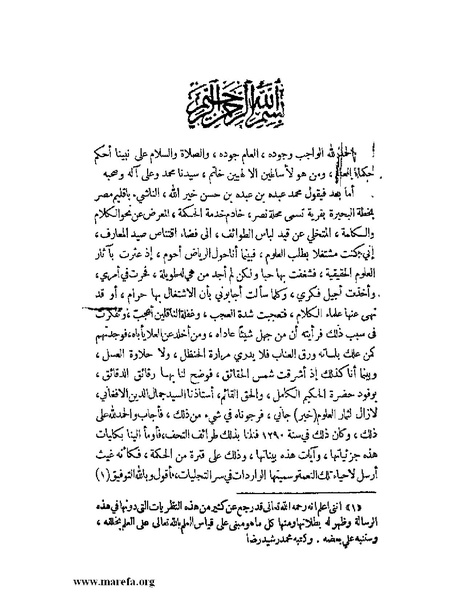 بسم الله الرحمن الرحيم
الحمد لله الواجب وجوده ، العام جوده ، والصلاة والسلام على نبينا أحكم
حكماء العالم ، ومن هو لأساطين الالهيين خاتم ، سيدنا محمد وعلى آله وصحبه
أما بعد فيقول محمد عبده بن عبده بن حسن خير الله ، الناشىء باقليم مصر
بخطة البحيرة بقرية تسمى محلة نصر ، خادم خدمة الحكمة ، المعرض عن نحو الكلام
والكلمة ، المتخلي عن قيد لباس الطوائف ، الى فضاء اقتناص صيد المعارف ،
إني كنت مشتغلا بطلب العلوم ، فبينما أنا حول الرياض أحوم ، إذ عثرت بآثار
العلوم الحقيقية ، فشغفت بها حبا ولكن لم أجد من هي له طويلة ، فحرت في أمري ،
وأخذت أجيل فكري ، وكلما سألت أجابوني بأن الاشتغال بها حرام ، أو قد
نهى عنها علماء الكلام ، فتعجبت شدة العجب ، وغفلة الناقلين أعجب ، وتفكرت
في سبب ذلك فرأيته أن من جهل شيئاً عاداه ، ومن أخلد عن العلا يأباه ، فوجدتهم
كمن علك بلسانه ورق العناب فلا يدري مرارة الحنظل ، ولا حلاوة العسل ،
وبينما أنا كذلك إذ أشرقت شمس الحقائق ، فوضح لنا بها رقائق الدقائق ،
بوفود حضرة الحكيم الكامل ، والحق القائم ، أستاذنا السيد جمال الدين الافغاني ،
لا زال لثمار العلوم (خير) جاني ، فرجوناه في شيء من ذلك ، فأجاب والحمد لله على
ذلك ، وكان ذلك في سنة ١٢٩٠ فنلنا بذلك طرائف التحف ، فأومأ الينا بكليات
هذه جزئياتها ، وآيات هذه بيناتها ، وذلك على فترة من الحكمة ، فكأنه غيث
أرسل لاحياء تلك النعمة وسميتها الواردات في سر التجليات ، فأقول وبالله التوفيق (١)
(١) انني اعلم انه رحمه الله تعالى قد رجع عن كثير من هذه النظريات التي دونها في هذه
الرسالة وظهر له بطلانها ومنها كل ما هو مبني على قياس العلم بالله تعالى على العلم بخلقه ،
وسننبه على بعضه . وكتبه محمد رشيد رضا
www.marefa.org